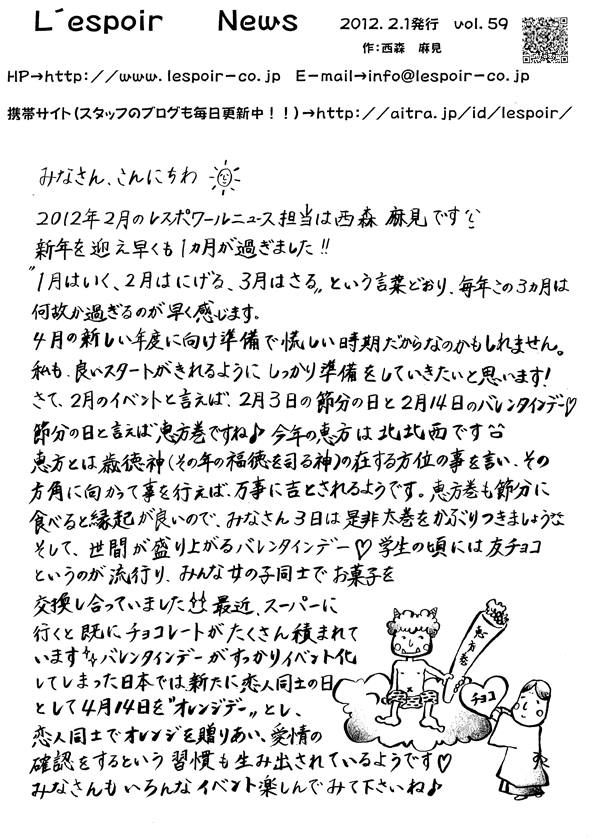 L'espoir News 2012.2.1発行 vol.59
作:西森 麻見
HP→http://www.lespoir-co.jp E-mail→info@lespoir-co.jp
携帯サイト(スタッフのブログも毎日更新中!!)→http://aitra.jp/id/lespoir/
みなさん、こんにちわ
2012年2月のレスポワールニュース担当は西森 麻見です
新年を迎え早くも1カ月が過ぎました!!
"1月はいく、2月はにげる、3月はさる"という言葉どおり、毎年この3カ月は
何故か過ぎるのが早く感じます。
4月の新しい年度に向け準備で慌しい時期だからなのかもしれません。
私も、良いスタートがきれるようにしっかり準備をしていきたいと思います!
さて、2月のイベントと言えば、2月3日の節分の日と2月14日のバレンタインデー♡
節分の日と言えば"恵方巻ですね♪ 今年の恵方は北北西です
恵方とは歳徳神(その年の福徳を司る神)の在する方位の事を言い、その
方角に向かって事を行えば、万事に吉とされるようです。恵方巻も節分に
食べると縁起が良いので、みなさん3日は是非太巻をかぶりつきましょう
そして、世間が盛り上がるバレンタインデー♡ 学生の頃には友チョコ
というのが流行り、みんな女の子同士でお菓子を
交換し合っていました 最近、スーパーに
行くと既にチョコレートがたくさん積まれて
います バレンタインデーがすっかりイベント化
してしまった日本では新たに恋人同士の日
として4月14日を"オレンジデー"とし、
恋人同士でオレンジを贈りあい、愛情の
確認をするという習慣も生み出されているようです♡
みなさんもいろんなイベント楽しんでみて下さいね♪
恵方巻
チョコ